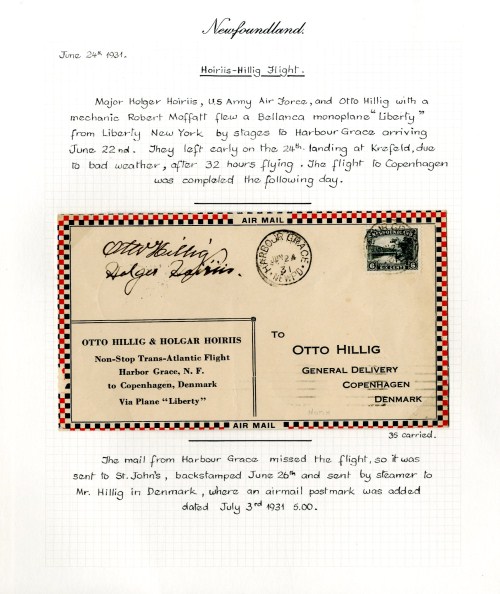 Newfoundland.
June 24th 1931.
Hoiriis-Hillig Flight.
Major Holger Hoiriis, U.S Army Air Force, and Otto Hillig with a
mechanic Robert Moffatt flew a Bellanca monoplane "Liberty"
from Liberty New York by stages to Harbour Grace arriving
June 22nd. They left early on the 24th. landing at Krefeld, due
to bad weather, after 32 hours flying. The flight to Copenhagen
was completed the following day.
AIR MAIL
Otto Hillig
Holger Hoiriis.
HARBOUR GRACE
31
NEWFD.
SIX CENTS
OTTO HILLIG & HOLGAR HOIRIIS
Non-Stop Trans-Atlantic Flight
Harbor Grace, N. F.
to Copenhagen, Denmark
Via Plane "Liberty"
TO
OTTO HILLIG
GENERAL DELIVERY
COPENHAGEN
DENMARK
AIR MAIL
35 carried.
The mail from Harbour Grace missed the flight, so it was
sent to St. John's, backstamped June 26th and sent by steamer to
Mr. Hillig in Denmark, where an airmail postmark was added
dated July 3rd 1931 5.00.